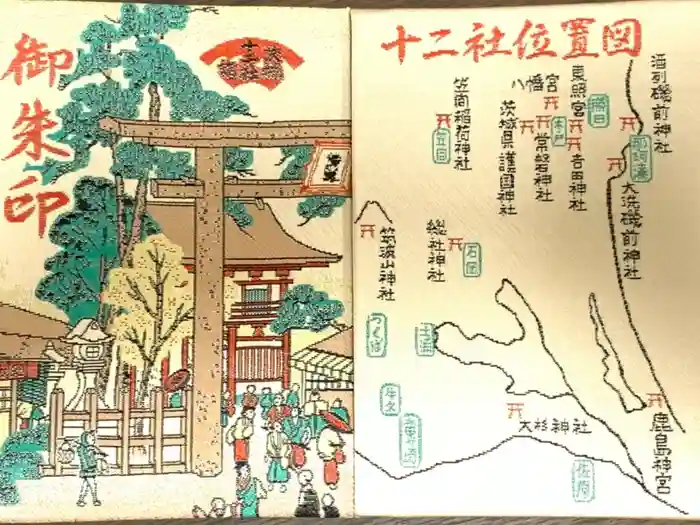 御朱印
十二社
十二社位置図
酒列磯前神社
東照宮
八幡宮
笠間稲荷神社
茨城県護国神社
常磐神社
吉田神社
大洗磯前神社
笠間
水戸
勝田
那珂湊
筑波山神社
總社神社
石岡
つくば
土浦
牛久
竜ヶ崎
大杉神社
佐原
鹿島神宮